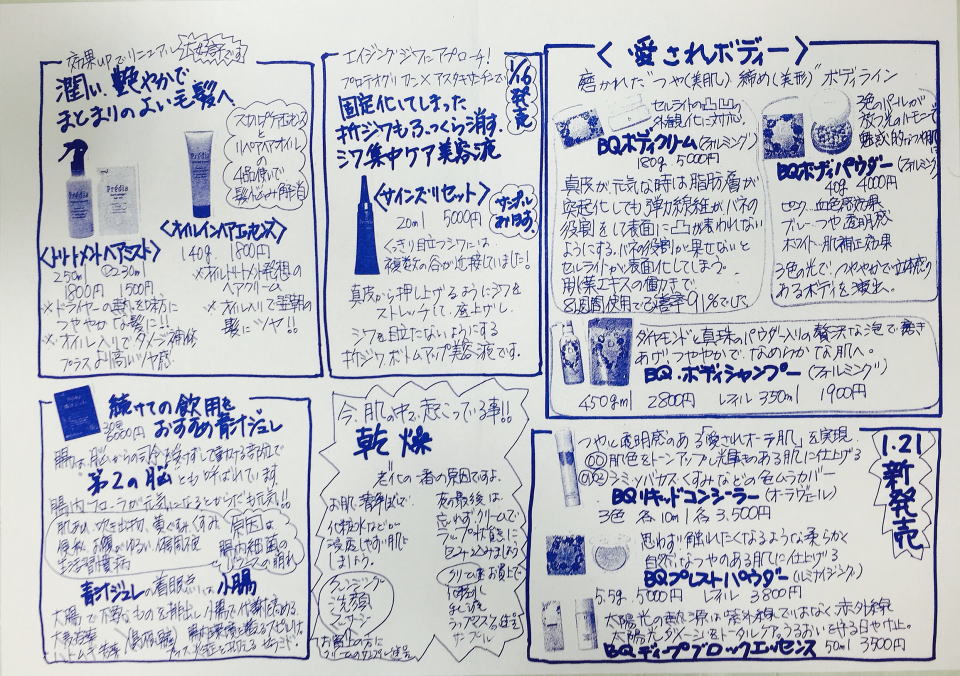 効果upでリニューアル大好評です
潤い、艶やかで
まとまりのよい毛髪へ
Prédia
Prédia
スカルプエッセンス
と
リペアヘアオイル
の
4品使いで
〈トリートメントヘアミスト〉
250ml 230ml
1800円 1500円
※ドライヤーの熱を味方に
つややかな髪に!!
※オイル入りでダメージ補修
プラス、より高いツヤ感
〈オイルインヘアエッセンス〉
140g 1800円
※オイルトリートメント発想の
ヘアクリーム
髪にツヤ!!
エイジングジワにアプローチ!
プロテオグリカン×アスタキサンチンで
1/16発売
固定化してしまった
折ジワもふっくら消す。
シワ集中ケア美容液
〈サインズリセット〉
20ml 5000円
サンプルあります。
くっきり目立つシワには
複数の谷が近接していました!
真皮から押し上げるようにシワを
ストレッチして、底上げし
シワを目立たないようにする
折ジワ、ボトムアップ美容液です。
〈愛されボディー〉
磨かれた"つや(美肌)締め(美形)"ボディライン
セルライトの凸凹の
外観化に対応。
BQボディクリーム(フォルミング)
180g 5000円
真皮が元気な時は脂肪層が
突起化しても弾力線維がバネの
役割をして表面に凸が表われない
ようにする。バネの役割が果せないと
セルライトが表面化してしまう。
エキスの働きで
8週間使用で改善率91%でした
3色のパールが
放つ光のハーモニーで
魅惑的なつや肌
BQボディパウダー(フォルミング)
40g 4000円
ピンク…血色感効果
ブルー…つや透明感
ホワイト…肌補正効果
3色の光で、つややかで立体感の
あるボディを演出。
ダイヤモンドと真珠のパウダー入りの贅沢な泡で磨き
あげ、つややかで、なめらかな肌へ。
BQ.ボディシャンプー(フォルミング)
450ml 2800円 レフィル350ml 1900円
続けての飲用を
おすすめ青汁ジュレ
30包
6000円
腸は、脳からの命令を待たずして動ける器官で
"第2の脳"とも呼ばれています。
腸内フローラが元気になるとからだも元気!!
肌あれ、吹き出物、黄ぐすみ、くすみ
便秘、お腹がゆるい、体調不良
生活習慣病
原因は
腸内細菌の
バランスの崩れ
青汁ジュレの着眼点は、小腸
大腸で不要なものを排出し、小腸で代謝を高める。
大麦若葉
今、肌の中で、起こっている事!!
乾燥
老化の一番の原因ですよ。
化粧水などが
浸透しやすい肌に
しましょう。
夜の最後は
忘れずクリームで
ラップ状態に
包みこみましょう
クレンジング
洗顔
マッサージ
お買上の方に
サンプル
1.21新発売
つやと透明感のある「愛されオーラ肌」を実現
肌色をトーンアップし光輝きのある肌に仕上げる
シミ・ソバカス・くすみなどの色ムラカバー
BQリキッドコンシーラー(オーラヴェール)
3色 各10ml 各3,500円
思わず触れたくなるような柔らかく
自然なつやのある肌に仕上げる
BQプレストパウダー(ルミナイジング)
5.5g 5000円 レフィル 3800円
太陽光の熱の源は紫外線ではなく赤外線
太陽の光ダメージをトータルケア。うるおいを守る日やけ止。
BQディープブロックエッセンス 50ml 3500円